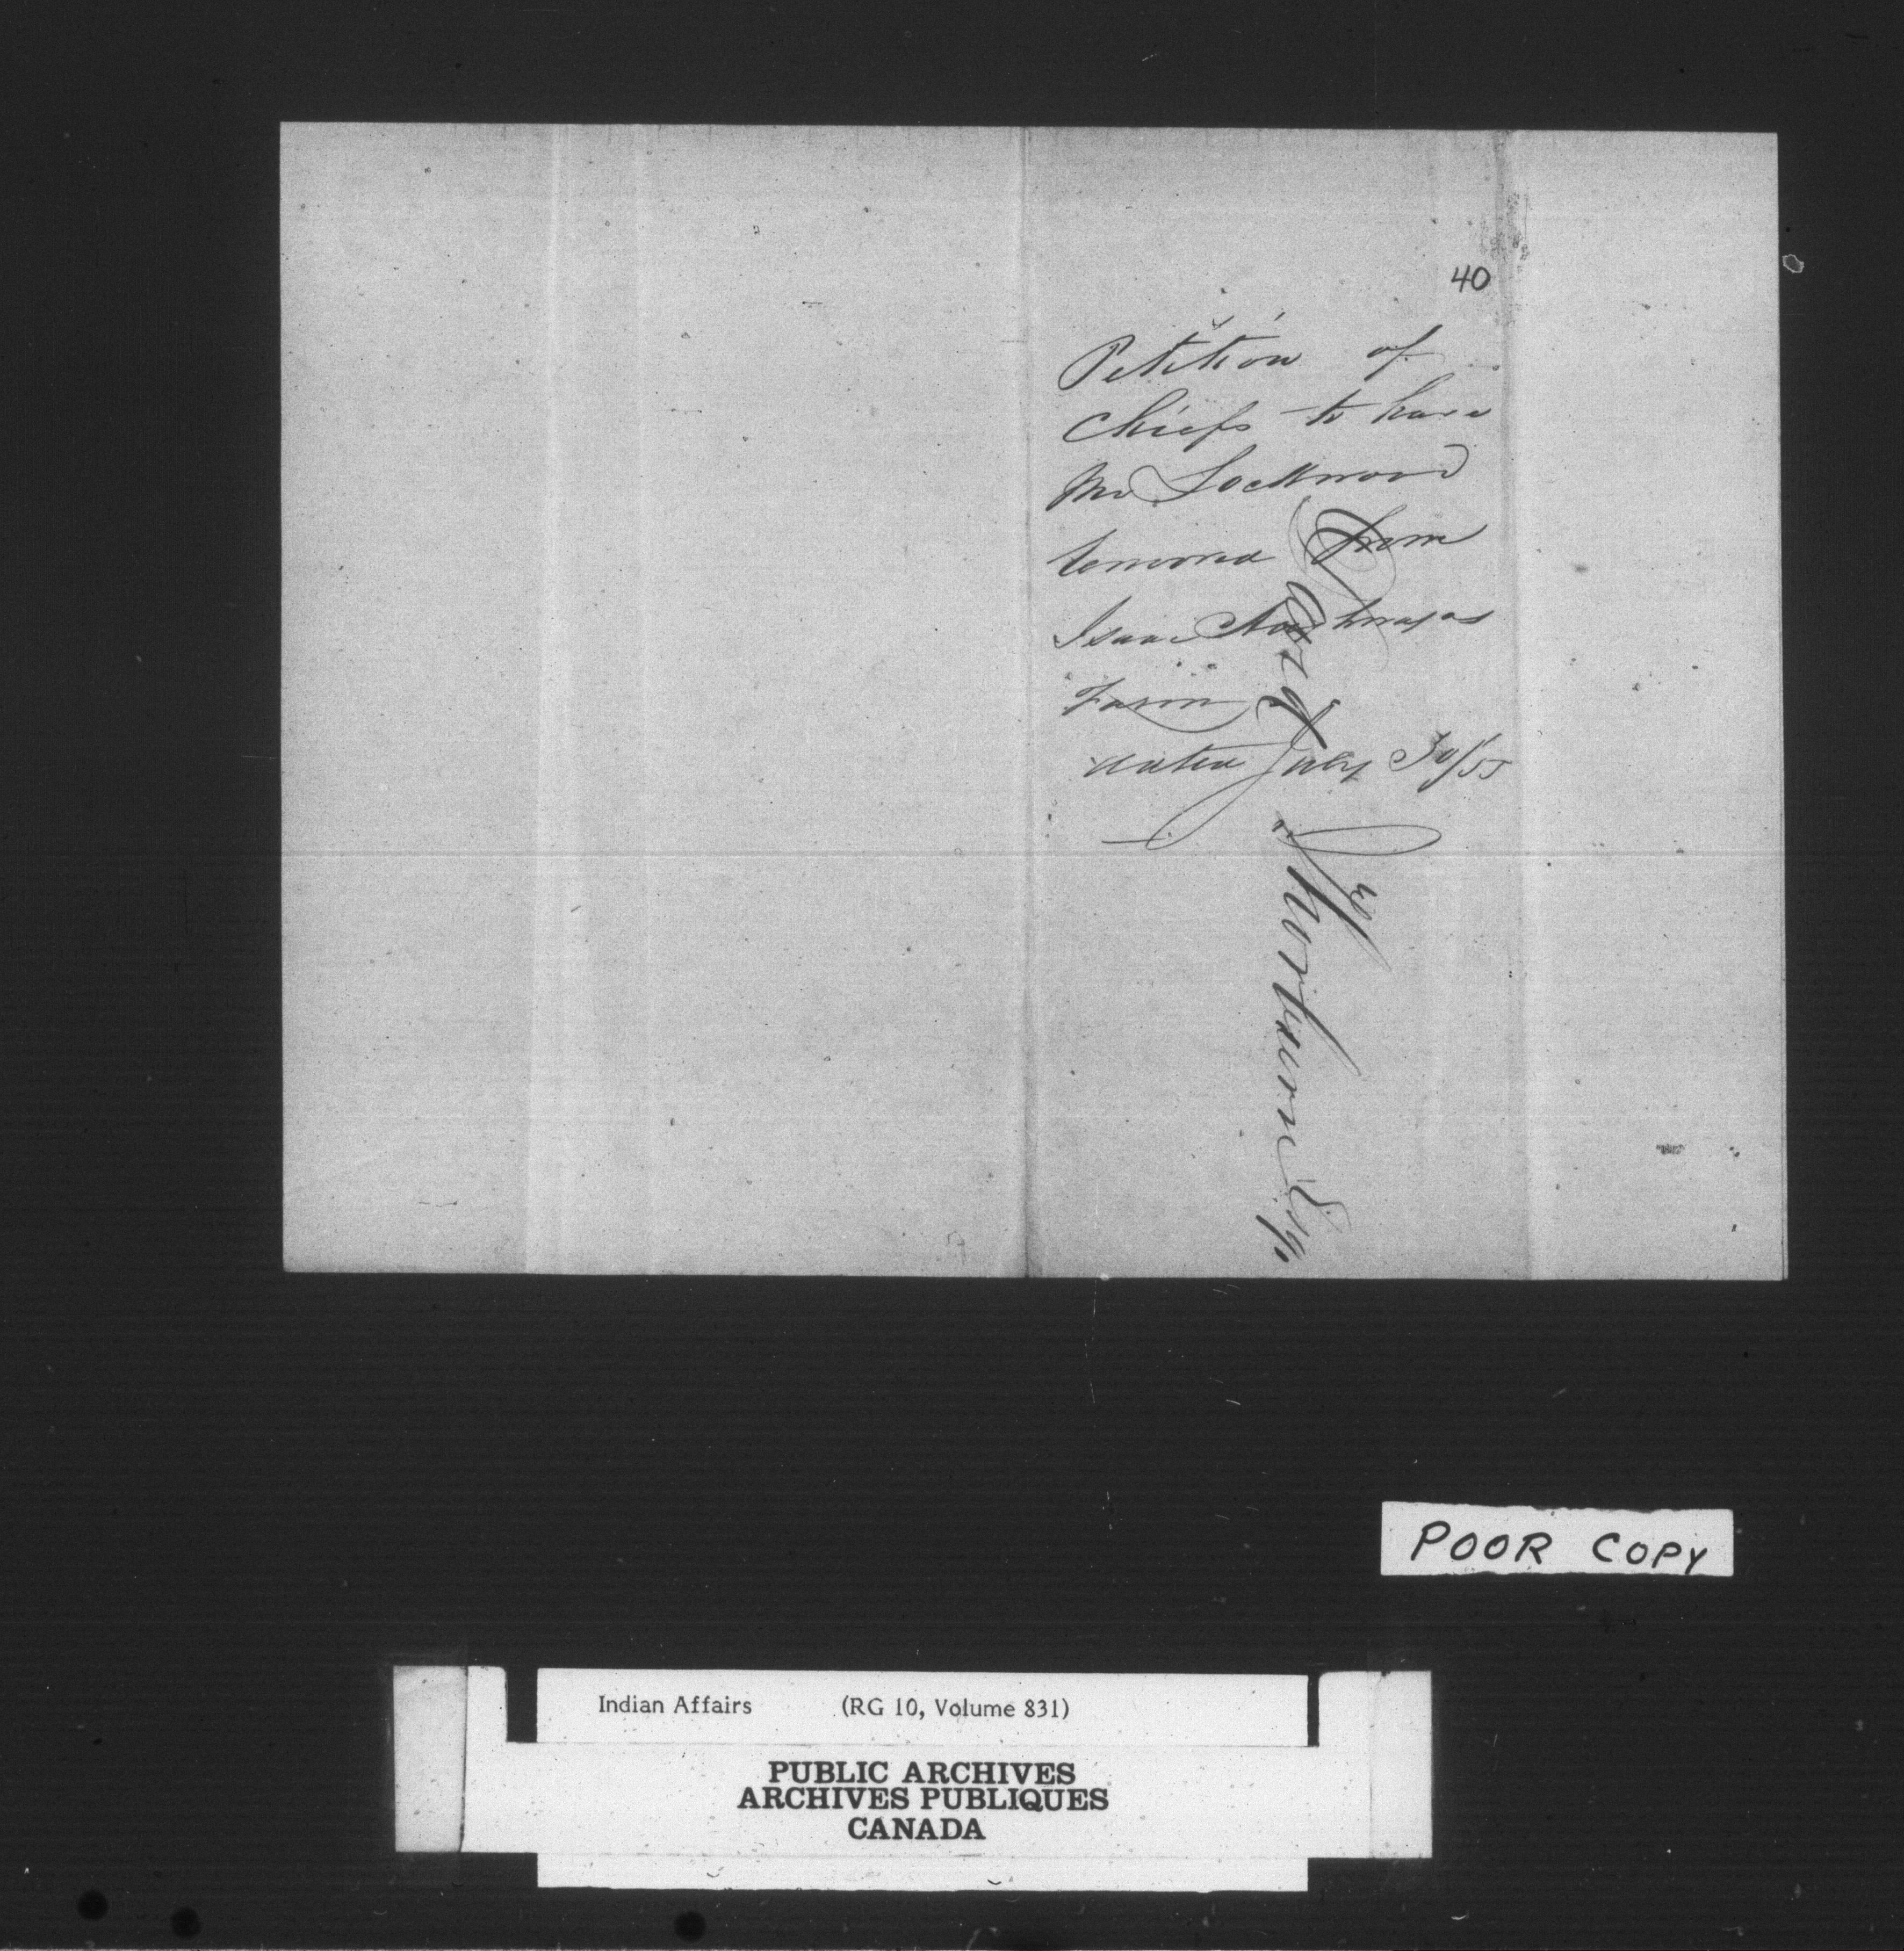 40
Petition of
Chiefs to have
Mr Lockwood
removed from
Isaac
Farm
dated July 30/55
David Thorburn Esq.
POOR COPY
Indian Affairs (RG 10, Volume 831)
PUBLIC ARCHIVES
ARCHIVES PUBLIQUES
CANADA